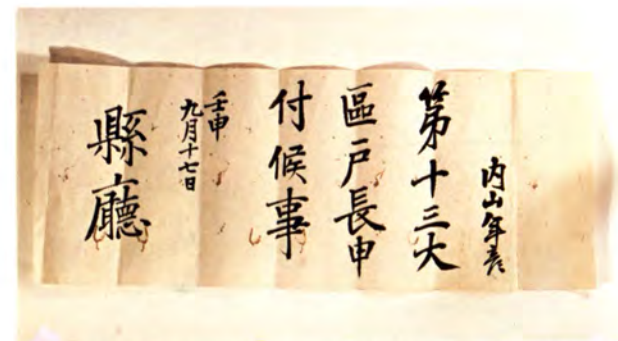 内山年彦
第十三大
區戸長申
付候事
壬申
九月十七日
縣廳